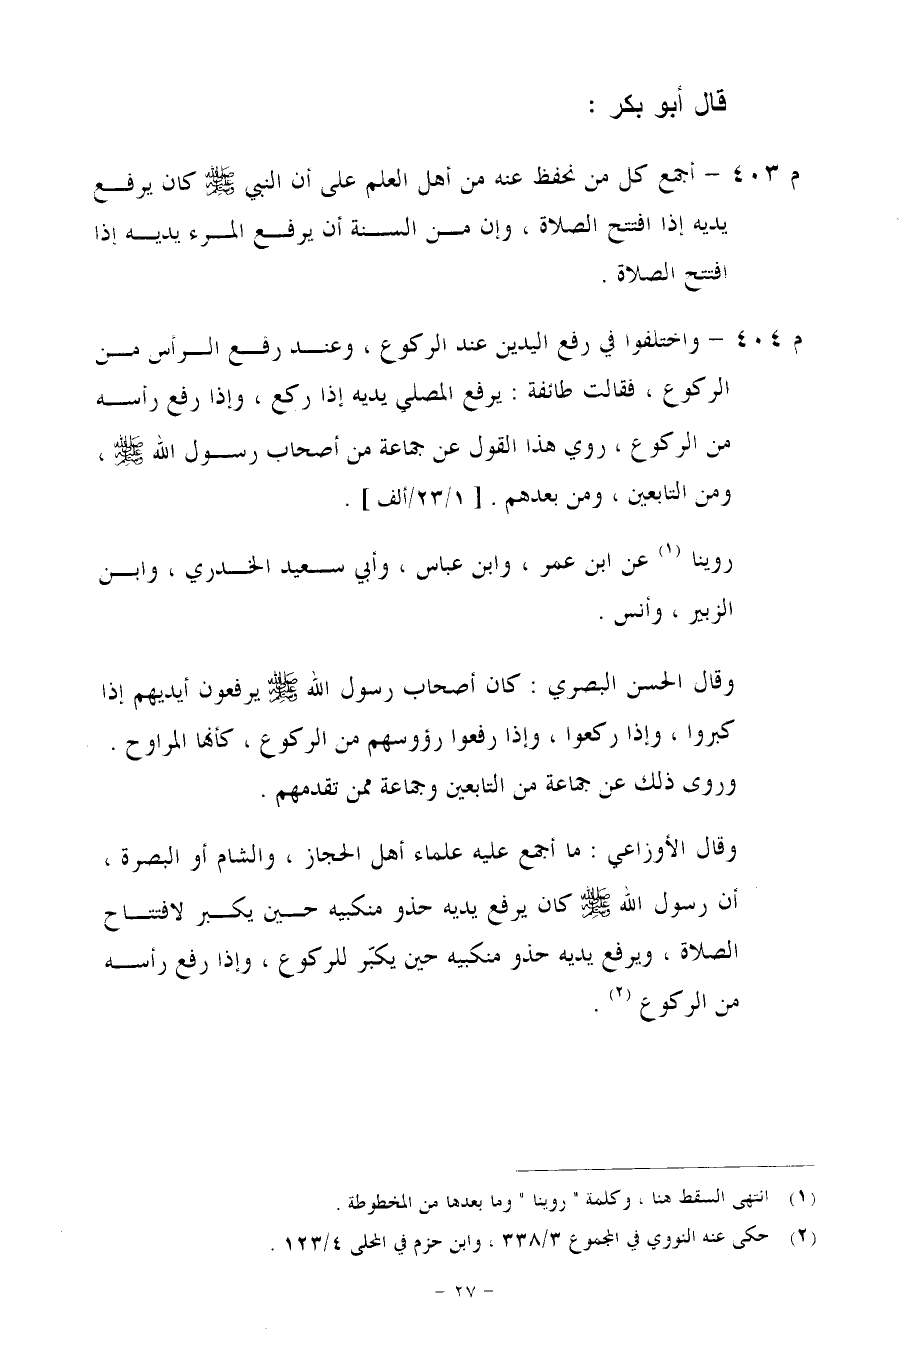 قال أبو بكر :
م ٤٠٣ – أجمع كل من نحفظ عنه من أهل العلم على أن النبي ﷺ كان يرفع
يديه إذا افتتح الصلاة ، وإن من السنة أن يرفع المرء يديه إذا
افتتح الصلاة .
م ٤٠٤ – واختلفوا في رفع اليدين عند الركوع ، وعند رفع الرأس من
الركوع ، فقالت طائفة : يرفع المصلي يديه إذا ركع ، وإذا رفع رأسه
من الركوع ، روي هذا القول عن جماعة من أصحاب رسول الله ﷺ ،
ومن التابعين ، ومن بعدهم . [ ٢٣/١/ألف ] .
روينا (١) عن ابن عمر ، وابن عباس ، وأبي سعيد الخدري ، وابن
الزبير ، وأنس .
وقال الحسن البصري : كان أصحاب رسول الله ﷺ يرفعون أيديهم إذا
كبروا ، وإذا ركعوا ، وإذا رفعوا رؤوسهم من الركوع ، كأنها المراوح .
وروى ذلك عن جماعة من التابعين وجماعة ممن تقدمهم .
وقال الأوزاعي : ما أجمع عليه علماء أهل الحجاز ، والشام أو البصرة ،
أن رسول الله ﷺ كان يرفع يديه حذو منكبيه حين يكبر لافتتاح
الصلاة ، ويرفع يديه حذو منكبيه حين يكبّر للركوع ، وإذا رفع رأسه
من الركوع (٢) .
(١) انتهى السقط هنا ، وكلمة " روينا " وما بعدها من المخطوطة .
(٢) حكى عنه النووي في المجموع ٣٣٨/٣ ، وابن حزم في المحلى ١٢٣/٤ .
– ٢٧ –